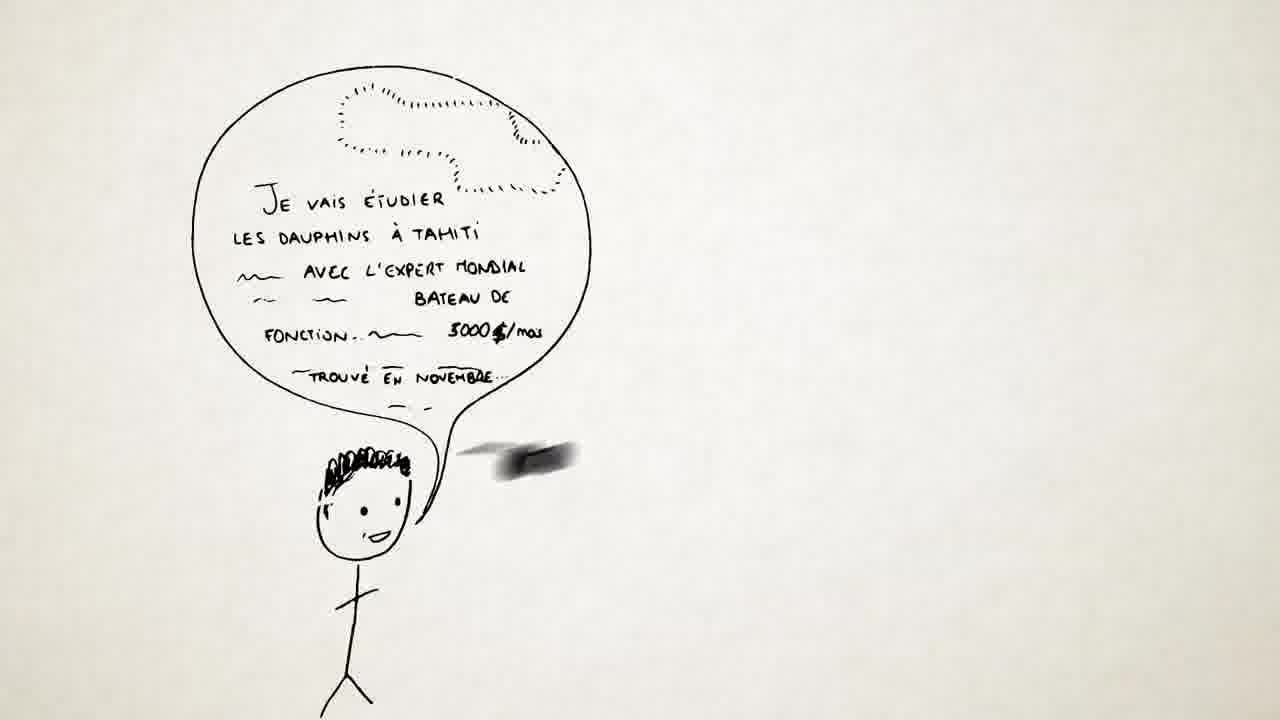 Je vais étudier
les dauphins à Tahiti
avec l'expert mondial
bateau de
fonction.. 5000$/mois
trouvé en novembre...